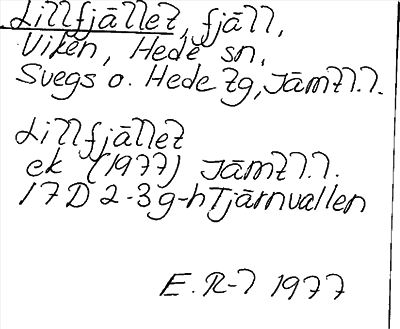 Lillfjället, fjäll,
Viken, Hede sn,
Svegs o. Hede tg, Jämtl.l.
Lillfjället
ek (1977) Jämtl.l.
17D 2-3g-h Tjärnvallen
E.R-l 1977